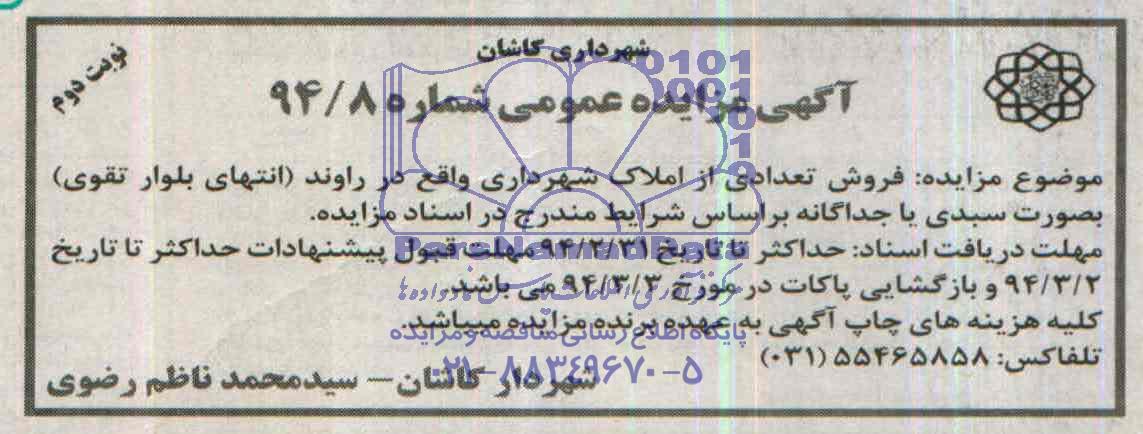 شهرداری کاشان
نوبت دوم
آگهی مزایده عمومی شماره ۹۴/۸
موضوع مزایده: فروش تعدادی از املاک شهرداری واقع در راوند (انتهای بلوار تقوی)
بصورت سبدی یا جداگانه براساس شرایط مندرج در اسناد مزایده.
مهلت دریافت اسناد: حداکثر تا تاریخ ۹۴/۲/۳۱ مهلت قبول پیشنهادات حداکثر تا تاریخ
۹۴/۳/۲ و بازگشایی پاکات در مورخ ۹۴/۳/۳ می باشد.
کلیه هزینه های چاپ آگهی به عهده برنده مزایده میباشد.
تلفاکس: ۵۵۴۶۵۸۵۸ (۰۳۱)
شهردار کاشان – سیدمحمد ناظم رضوی
پایگاه اطلاع رسانی مناقصه و مزایده
۰۲۱-۸۸۳۴۹۶۷۰-۵